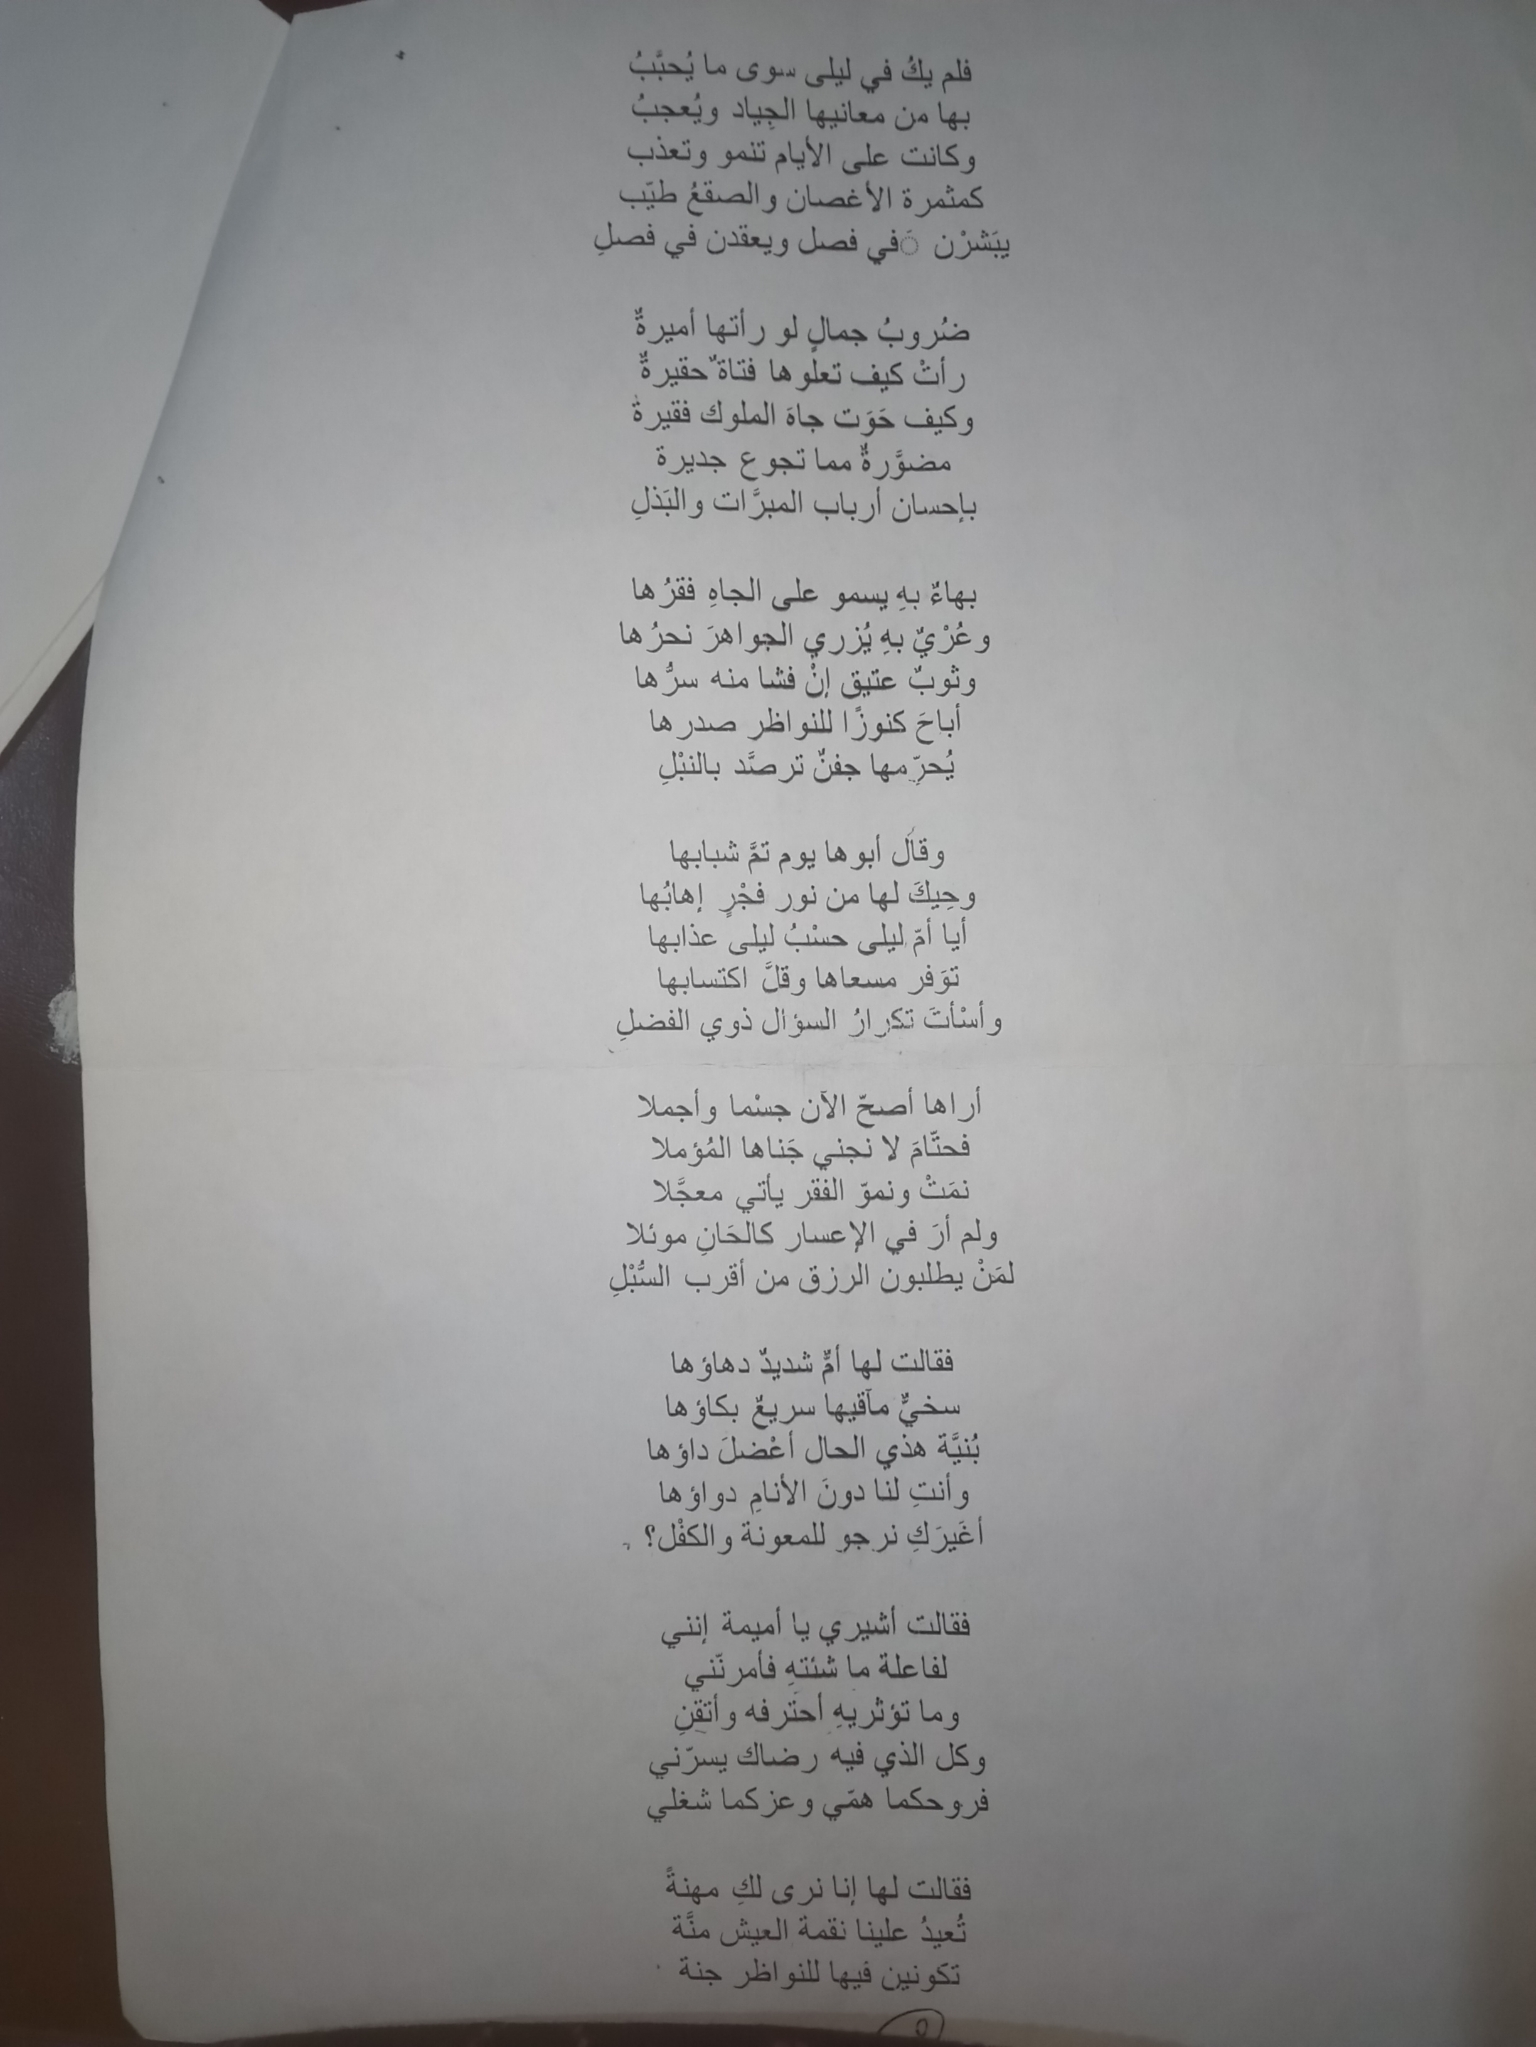 فلم يكُ في ليلى سوى ما يُحبَّبُ
بها من معانيها الجِياد ويُعجبُ
وكانت على الأيام تنمو وتعذب
كمثمرة الأغصان والصقعُ طيّب
يبَشرْن َفي فصل ويعقدن في فصلِ

ضُروبُ جمالٍ لو رأتها أميرةٌ
رأتْ كيف تعلُوها فتاة ٌحقيرةٌ
وكيف حَوَت جاهَ الملوك فقيرة
مضوَّرةٌ مما تجوع جديرة
بإحسان أرباب المبرَّات والبَذلِ

بهاءٌ بهِ يسمو على الجاهِ فقرُها
وعُرْيٌ بهِ يُزري الجواهرَ نحرُها
وثوبٌ عتيق إنْ فشا منه سرُّها
أباحَ كنوزًا للنواظر صدرها
يُحرِّمها جفنٌ ترصَّد بالنبْلِ

وقال أبوها يوم تمَّ شبابها
وحِيكَ لها من نور فجْرٍ إهابُها
أيا أمّ ليلى حسْبُ ليلى عذابها
توَفر مسعاها وقلَّ اكتسابها
وأسْأتَ تكرارُ السؤال ذوي الفضلِ

أراها أصحّ الآن جسْما وأجملا
فحتّامَ لا نجني جَناها المُؤملا
نمَتْ ونموّ الفقر يأتي معجَّلا
ولم أرَ في الإعسار كالحَانِ موئلا
لمَنْ يطلبون الرزق من أقرب السُّبْلِ

فقالت لها أمٌّ شديدٌ دهاؤها
سخيٌّ مآقيها سريعٌ بكاؤها
بُنيَّة هذي الحال أعْضلَ داؤها
وأنتِ لنا دونَ الأنامِ دواؤها
أغَيرَكِ نرجو للمعونة والكفْل؟

فقالت أشيري يا أميمة إنني
لفاعلة ما شئتهِ فأمرنّني
وما تؤثريهِ أحترفه وأتقنِ
وكل الذي فيه رضاك يسرّني
فروحكما همّي وعزكما شغلي

فقالت لها إنا نرى لكِ مهنةً
تُعيدُ علينا نقمة العيش منَّة
تكونين فيها للنواظر جنة
٥